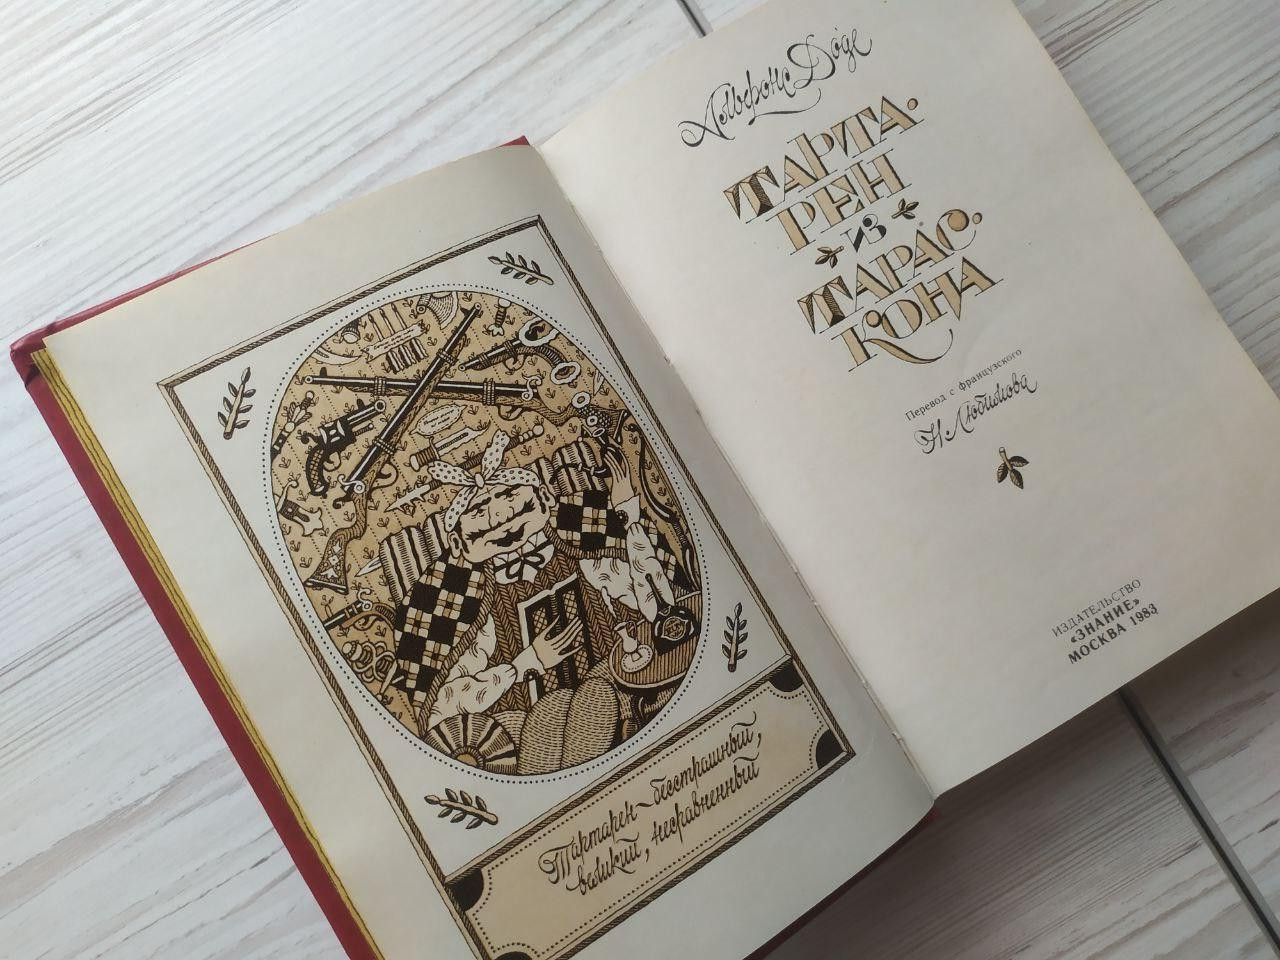 Тартарен – бесстрашный,
великий, несравненный
Альфонс Доде
ТАРТА-
РЕН
ИЗ
ТАРАС-
КОНА
Перевод с французского
Н. Любимова
ИЗДАТЕЛЬСТВО
«ЗНАНИЕ»
МОСКВА 1983